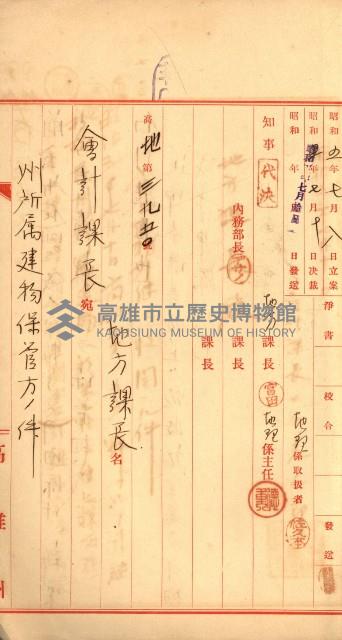 昭和五年七月八日立案
昭和 年七月十日決裁
昭和 年 月 日發送
淨書
校合
發送
地理係取扱者
知事
代決
內務部長
地方課長
地理係主任
課長
課長
高地第三九五〇號
會計課長宛
地方課長名
州所属建物保管方ノ件
高雄州
高雄市立歷史博物館
KAOHSIUNG MUSEUM OF HISTORY